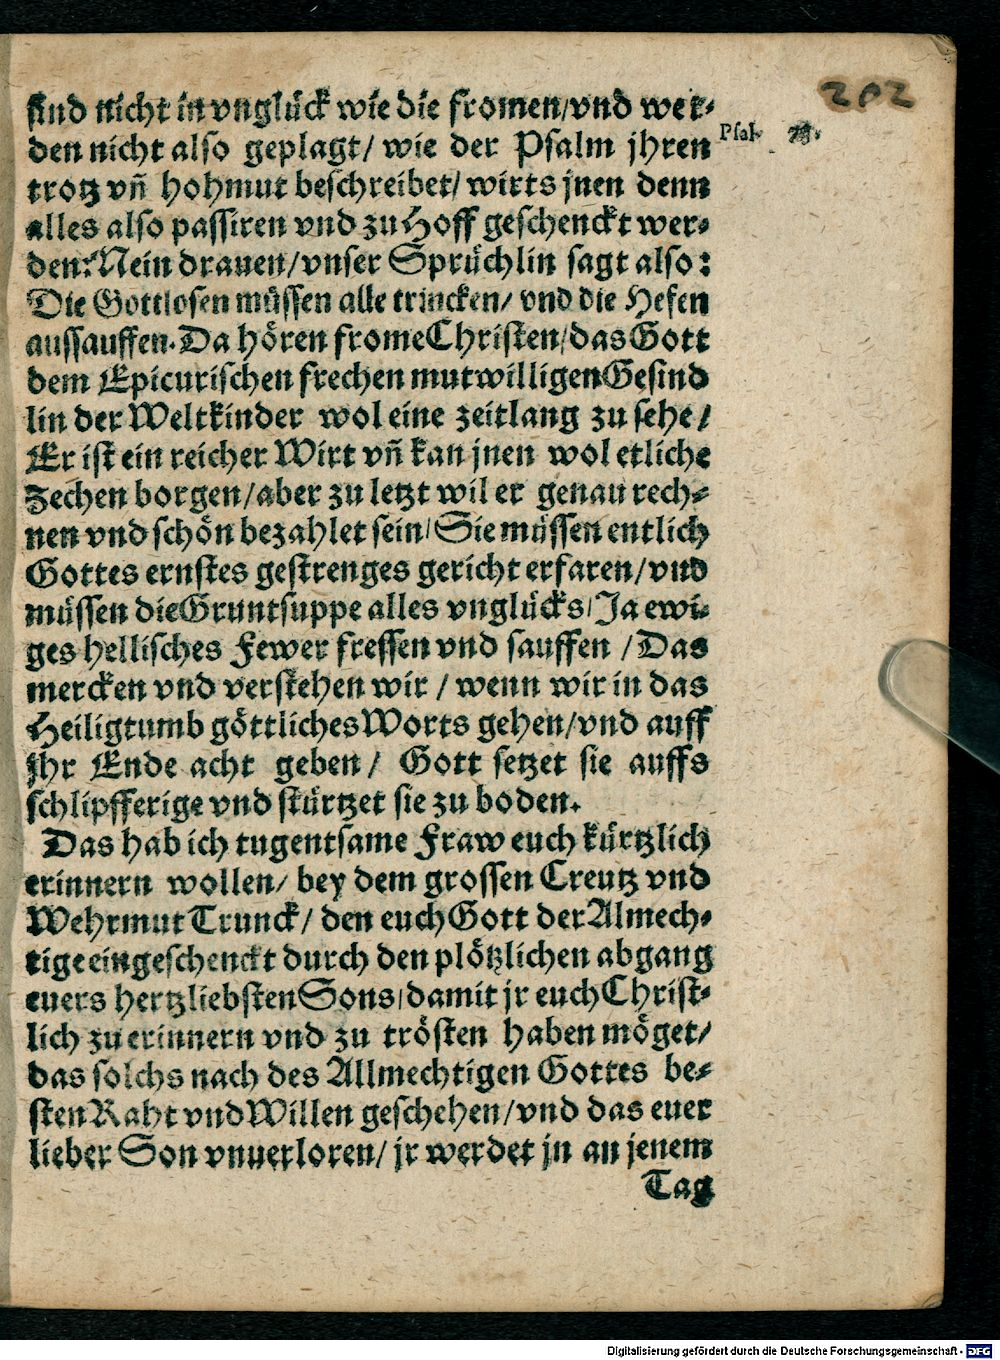 202
sind nicht in vnglück wie die fromen/vnd wer-
Psal. 73.
den nicht also geplagt/ wie der Psalm jhren
trotz vñ hohmut beschreibet/ wirts jnen denn
alles also passiren vnd zu Hoff geschenckt wer-
den? Nein drauen/vnser Sprüchlin sagt also:
Die Gottlosen müssen alle trincken/ vnd die Hefen
aussauffen. Da hören frome Christen/das Gott
dem Epicurischen frechen mutwilligen Gesind
lin der Weltkinder wol eine zeitlang zu sehe/
Er ist ein reicher Wirt vñ kan jnen wol etliche
Zechen borgen/aber zu letzt wil er genau rech-
nen vnd schön bezahlet sein/ Sie müssen entlich
Gottes ernstes gestrenges gericht erfaren/vnd
müssen die Gruntsuppe alles vnglücks/ Ja ewi-
ges hellisches Fewer fressen vnd sauffen /Das
mercken vnd verstehen wir / wenn wir in das
Heiligtumb göttliches Worts gehen/vnd auff
jhr Ende acht geben/ Gott setzet sie auffs
schlipfferige vnd stürtzet sie zu boden.
Das hab ich tugentsame Fraw euch kürtzlich
erinnern wollen/ bey dem grossen Creutz vnd
Wehrmut Trunck/ den euch Gott der Almech-
tige eingeschenckt durch den plötzlichen abgang
euers hertzliebsten Sons/damit jr euch Christ-
lich zu erinnern vnd zu trösten haben möget/
das solchs nach des Allmechtigen Gottes be-
sten Raht vnd Willen geschehen/vnd das euer
lieber Son vnuerloren/ jr werdet jn an jenem
Tag
Digitalisierung gefördert durch die Deutsche Forschungsgemeinschaft - DFG